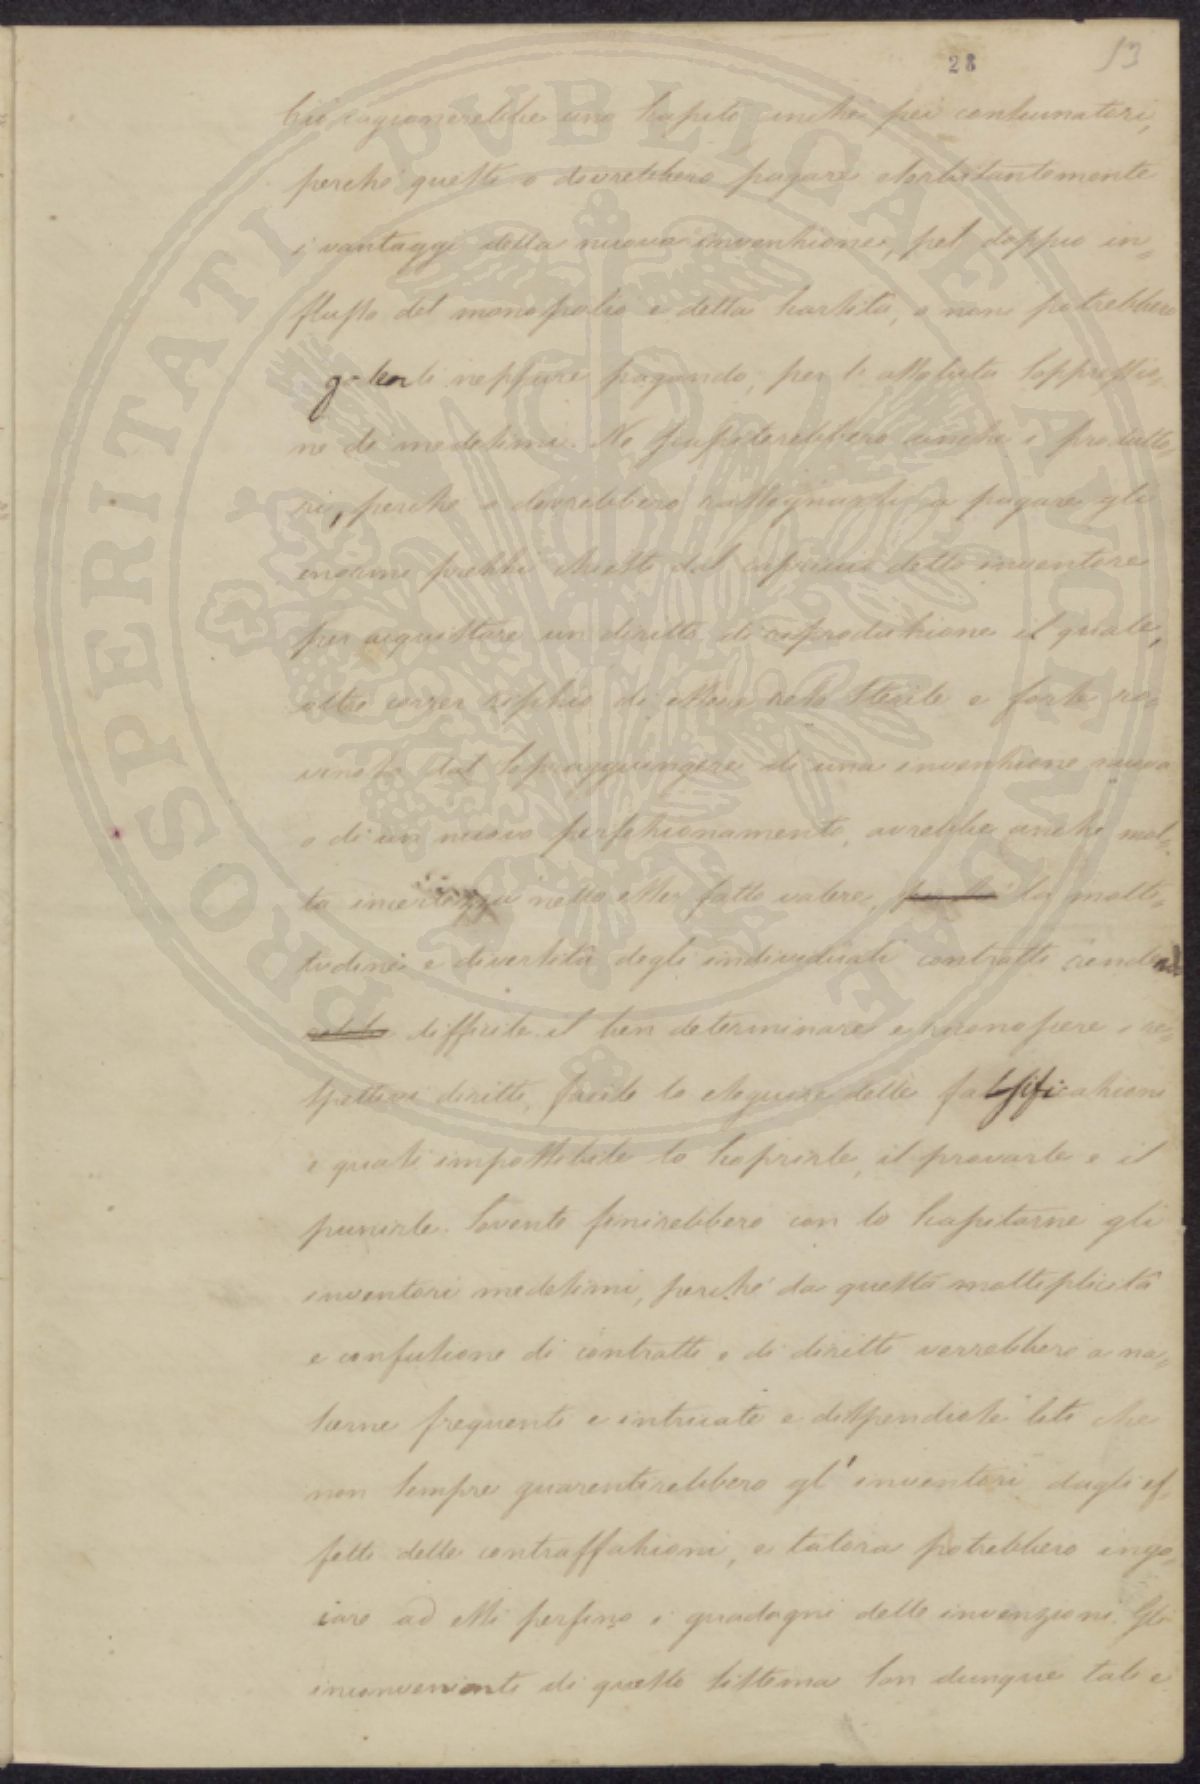 28
13
Ciò cagionerebbe uno scapito anche pei consumatori,
perchè questi o dovrebbero pagare esorbitantemente
i vantaggi della nuova invenzione, pel doppio in=
flusso del monopolio e della scarsità, o non potrebbero
goderli neppure pagando, per l'assoluta soppressio=
ne di medesimi. Ne scapiterebbero anche i produtto=
ri, perchè o dovrebbero rassegnarsi a pagare gli
enormi prezzi chiesti dal capriccio dello inventore
per acquistare un diritto di riproduzione il quale,
oltre correr rischio di esser reso sterile e forse ro=
vinoso dal sopraggiungere di una invenzione nuova
o di un nuovo perfezionamento, avrebbe anche mol=
ta incertezza nello esser fatto valere, la molti=
tudine e diversità degli individuali contratti rendendo
difficile il ben determinare e riconoscere i ri=
spettivi diritti, facile lo eseguire delle falsificazioni
e quasi impossibile lo scoprirle, il provarle e il
punirle. Sovente finirebbero con lo scapitarne gli
inventori medesimi, perchè da questa molteplicità
e confusione di contratti e di diritti verrebbero a na=
scerne frequenti e intricate e dispendiose liti che
non sempre guarentirebbero gl'inventori dagli ef=
fetti delle contraffazioni, e talora potrebbero ingo=
iare ad essi perfino i guadagni delle invenzioni. Gli
inconvenienti di questo sistema son dunque tali e
PROSPERITATI PVBLICAE AVGENDAE